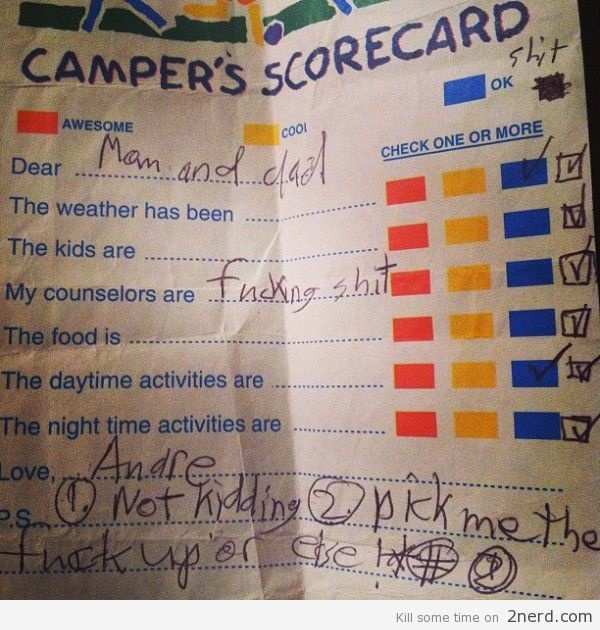 CAMPER'S SCORECARD
shit
OK
AWESOME
COOL
CHECK ONE OR MORE
Dear Mom and dad
The weather has been
The kids are
My counselors are fucking shit
The food is
The daytime activities are
The night time activities are
Love, Andre
P.S. 1. Not kidding 2. pick me the
fuck up or else !
Kill some time on 2nerd.com